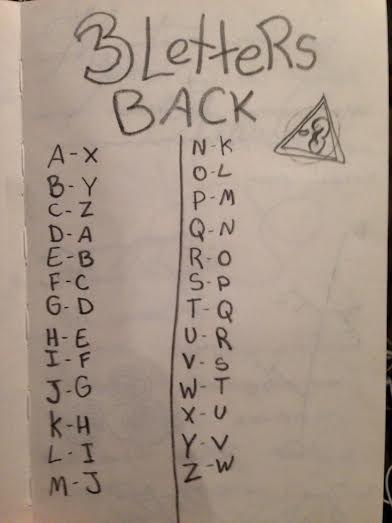 3 LetteRs
BACK
-3
A-X
B-Y
C-Z
D-A
E-B
F-C
G-D
H-E
I-F
J-G
K-H
L-I
M-J
N-K
O-L
P-M
Q-N
R-O
S-P
T-Q
U-R
V-S
W-T
X-U
Y-V
Z-W